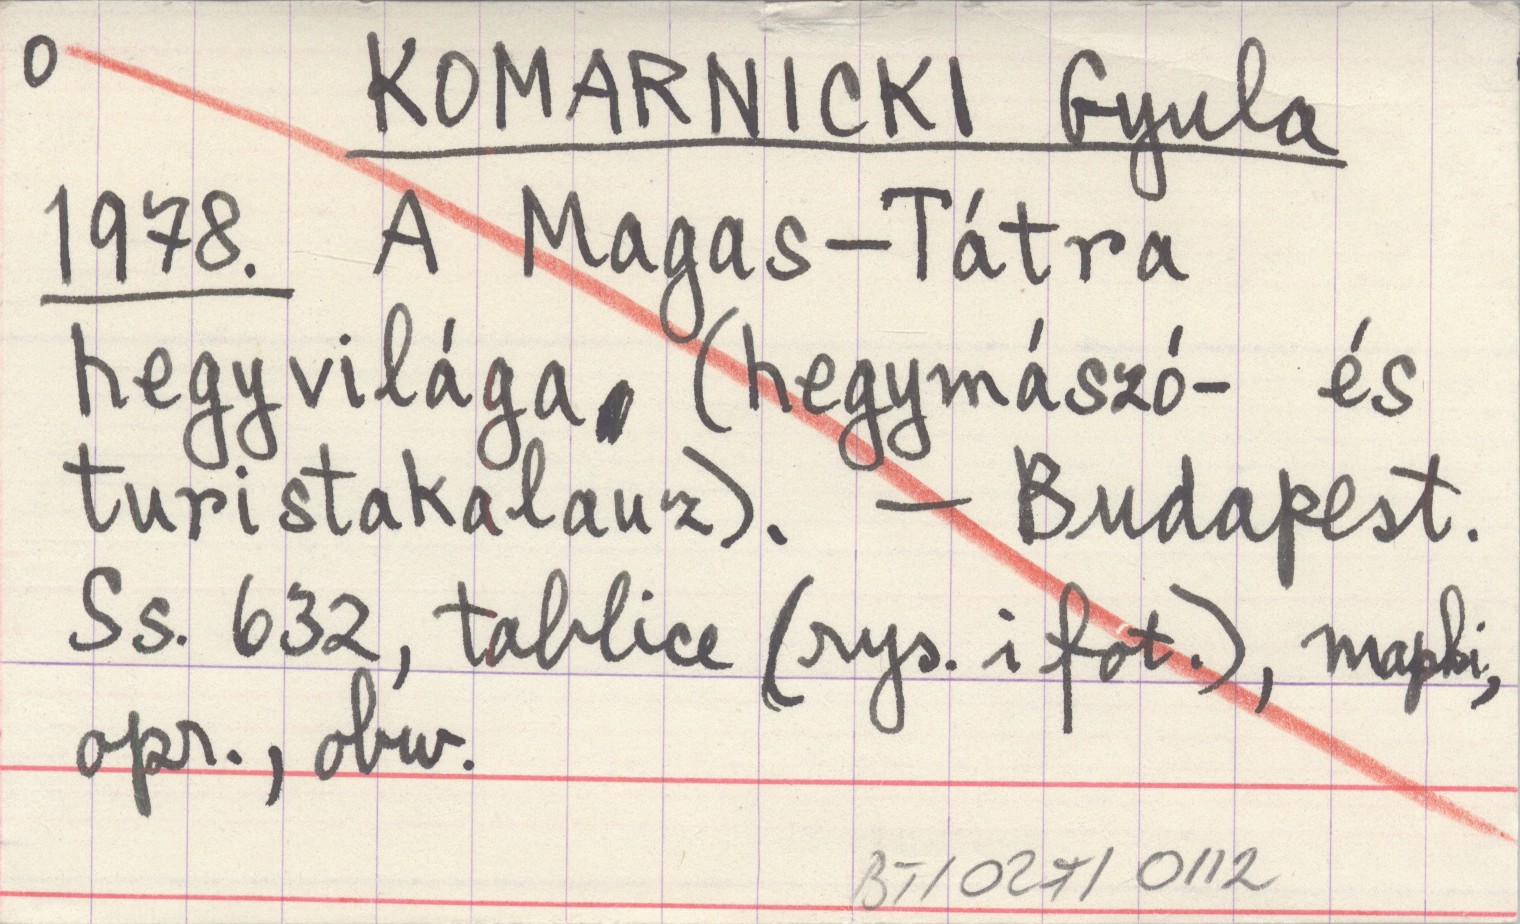 O KOMARNICKI Gyula
1978. A Magas-Tátra
hegyvilága. (hegymászó- és
turistakalauz). – Budapest.
Ss. 632, tablice (rys. i fot.), mapki,
opr., obw.
BT/027/0112